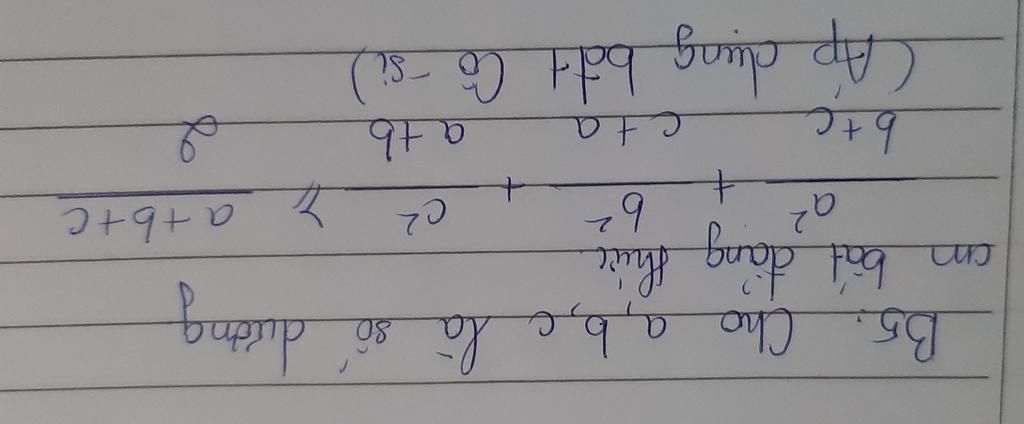 B5. Cho a, b, c là số dương
cm bất đẳng thức
a²/(b+c) + b²/(c+a) + c²/(a+b) ≥ (a+b+c)/2
(Áp dụng bđt Cô-si)